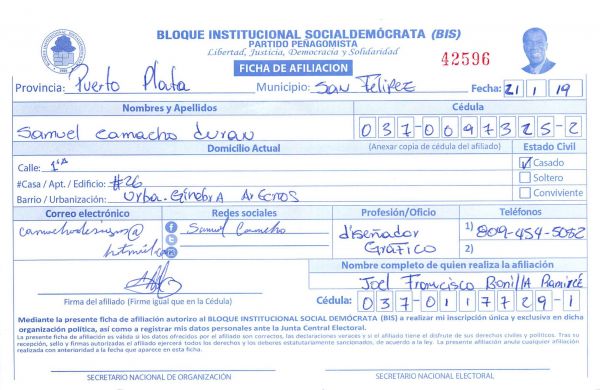 BLOQUE INSTITUCIONAL SOCIALDEMÓCRATA (BIS)
PARTIDO PEÑAGOMISTA
Libertad, Justicia, Democracia y Solidaridad
FICHA DE AFILIACION
42596
Provincia: Puerto Plata Municipio: San Felipe Fecha: 21 1 19
Nombres y Apellidos Cédula
Samuel Camacho duran 037-0097325-2
Domicilio Actual (Anexar copia de cédula del afiliado) Estado Civil
Calle: 1ra Casado
#Casa / Apt. / Edificio: #26 Soltero
Barrio / Urbanización: Urba. Ginebra Arecnos Conviviente
Correo electrónico Redes sociales Profesión/Oficio Teléfonos
Samuel Camacho diseñador 1) 809-454-5052
Gráfico 2)
Nombre completo de quien realiza la afiliación
Joel Francisco Bonilla Ramirez
Firma del afiliado (Firme igual que en la Cédula) Cédula: 037-0117729-1
Mediante la presente ficha de afiliación autorizo al BLOQUE INSTITUCIONAL SOCIAL DEMÓCRATA (BIS) a realizar mi inscripción única y exclusiva en dicha
organización política, así como a registrar mis datos personales ante la Junta Central Electoral.
La presente ficha de afiliación es válida si los datos ofrecidos por el afiliado son correctos, las declaraciones veraces y si el afiliado tiene el disfrute de sus derechos civiles y políticos. Tras su
recepción, sello y firmas autorizadas el afiliado ejercerá todos los derechos y los deberes estatutariamente sancionados, de acuerdo a la ley. La presente afiliación anula cualquier afiliación
realizada con anterioridad a la fecha que aparece en esta ficha.
SECRETARIO NACIONAL DE ORGANIZACIÓN SECRETARIO NACIONAL ELECTORAL